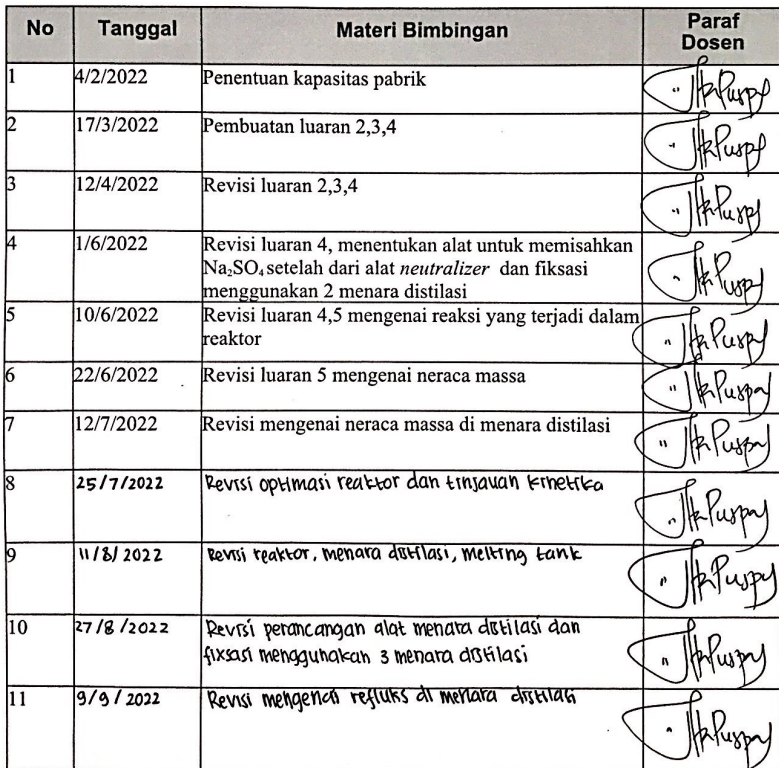 No Tanggal Materi Bimbingan Paraf
Dosen
1 4/2/2022 Penentuan kapasitas pabrik
2 17/3/2022 Pembuatan luaran 2,3,4
3 12/4/2022 Revisi luaran 2,3,4
4 1/6/2022 Revisi luaran 4, menentukan alat untuk memisahkan
Na₂SO₄ setelah dari alat neutralizer dan fiksasi
menggunakan 2 menara distilasi
5 10/6/2022 Revisi luaran 4,5 mengenai reaksi yang terjadi dalam
reaktor
6 22/6/2022 Revisi luaran 5 mengenai neraca massa
7 12/7/2022 Revisi mengenai neraca massa di menara distilasi
8 25/7/2022 Revisi optimasi reaktor dan tinjauan kinetika
9 11/8/2022 Revisi reaktor, menara distilasi, melting tank
10 27/8/2022 Revisi perancangan alat menara distilasi dan
fixsasi menggunakan 3 menara distilasi
11 9/9/2022 Revisi mengenai refluks di menara distilasi